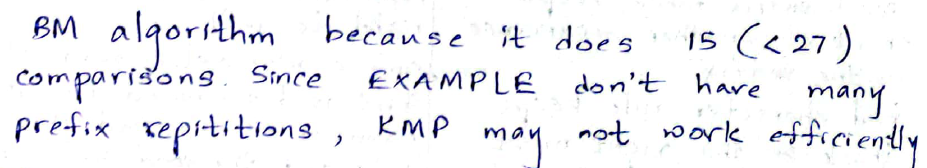 BM algorithm because it does 15 (<27)
comparisons. Since EXAMPLE don't have many
prefix repititions, KMP may not work efficiently